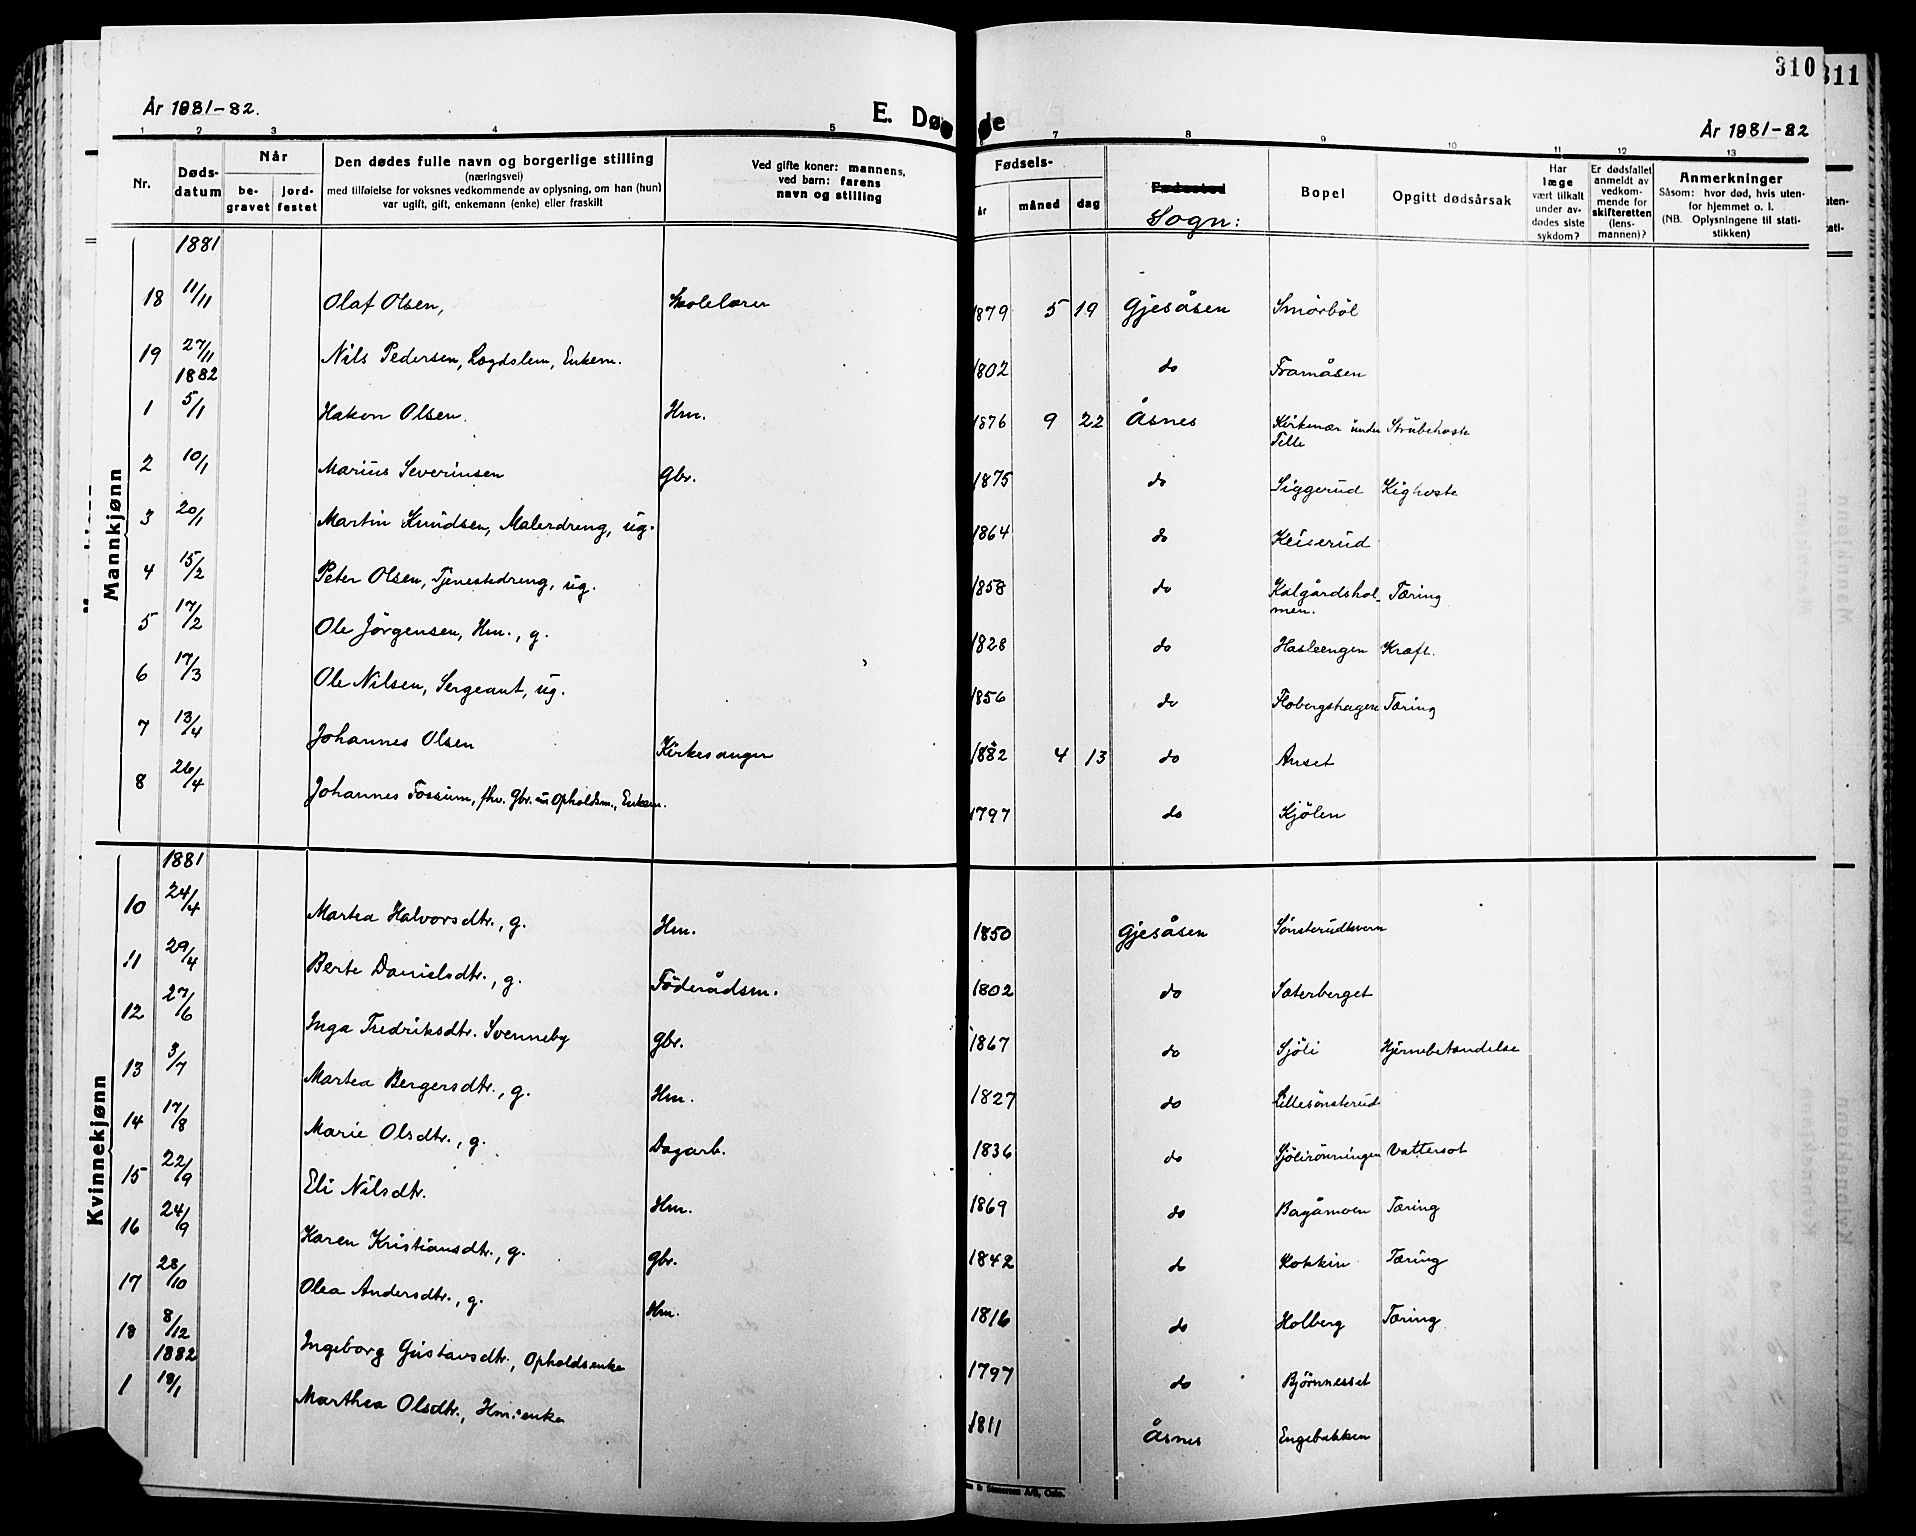 310
311
År 1881-82.
E. Døde
År 1881-82
1 2 3 4 5 7 8 9 10 11 12 13
Nr.
Døds-
datum
Når
be-
gravet
jord-
festet
Den dødes fulle navn og borgerlige stilling
(næringsvei)
med tilføielse for voksnes vedkommende av oplysning, om han (hun)
var ugift, gift, enkemann (enke) eller fraskilt
Ved gifte koner: mannens,
ved barn: farens
navn og stilling
Fødsels-
år måned dag
Fødested
Sogn:
Bopel
Opgitt dødsårsak
Har
læge
vært tilkalt
under av-
dødes siste
sykdom?
Er dødsfallet
anmeldt av
vedkom-
mende for
skifteretten
(lens-
mannen)?
Anmerkninger
Såsom: hvor død, hvis uten-
for hjemmet o. l.
(NB. Oplysningene til stati-
stikken)
Mannkjønn
1881
18 11/11 Olaf Olsen, Skolelærer 1879 5 19 Gjesåsen Smörböl
19 27/11 Nils Pedersen, Lægdslem, Enkem. 1802 do Framåsen
1882
1 5/1 Hakon Olsen. Hm. 1876 9 22 Åsnes Kirkenær under Strubehoste
Telle
2 10/1 Marius Severinsen Gbr. 1875 do Siggerud Kighoste
3 20/1 Martin Knudsen, Malerdreng, ug. 1864 do Keiserud
4 15/2 Peter Olsen, Tjenestedreng, ug. 1858 do Kalgårdshol- Tæring
men.
5 17/2 Ole Jörgensen, Hm., g. 1828 do Hasleengen Kræft.
6 17/3 Ole Nilsen, Sergeant, ug. 1856 do Flobergshagen Tæring
7 13/4 Johannes Olsen Kirkesanger 1882 4 13 do Anset
8 26/4 Johannes Fossum, fhv. Gbr. nu Opholdsm., Enkem. 1797 do Kjölen
Kvinnekjønn
1881
10 24/4 Martea Halvorsdtr., g. Hm. 1850 Gjesåsen Sönsterudkvern
11 29/4 Berte Danielsdtr., g. Föderådsm. 1802 do Sæterberget
12 27/6 Inga Fredriksdtr. Svenneby Gbr. 1867 do Sjöli Hjernebetændelse
13 3/7 Martea Bergersdtr., g. Hm. 1827 do Lillesönsterud
14 17/8 Marie Olsdtr., g. Dagarb. 1836 do Sjölirönningen Vattersot
15 22/9 Eli Nilsdtr. Hm. 1869 do Bagåmoen Tæring
16 24/9 Karen Kristiansdtr., g. Gbr. 1842 do Kokkin Tæring
17 28/10 Olea Andersdtr., g. Hm. 1816 do Holberg Tæring
18 8/12 Ingeborg Gustavsdtr., Opholdsenke 1797 do Björnnesset
1882
1 18/1 Marthea Olsdtr., Hm.enke 1811 Åsnes Engebakken